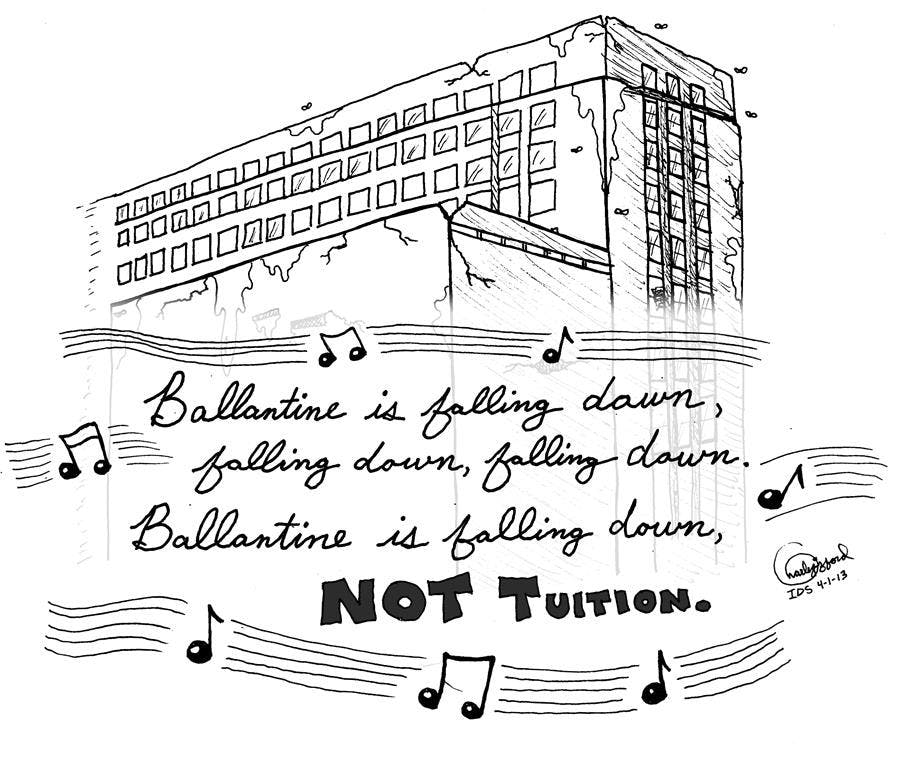 Ballantine is falling down,
falling down, falling down.
Ballantine is falling down,
NOT TUITION.
IDS 4-1-13